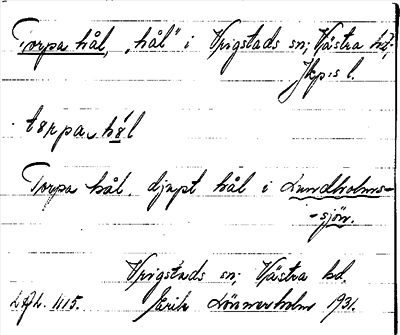 Torpa hål, „hål" i Vrigstads sn; Västra hd;
Jkp:s l.
tɵrpa hɵ́l
Torpa hål. djupt hål i Lundholms-
-sjön.
Vrigstads sn; Västra hd.
1115. Erik Lönnerholm 1931.